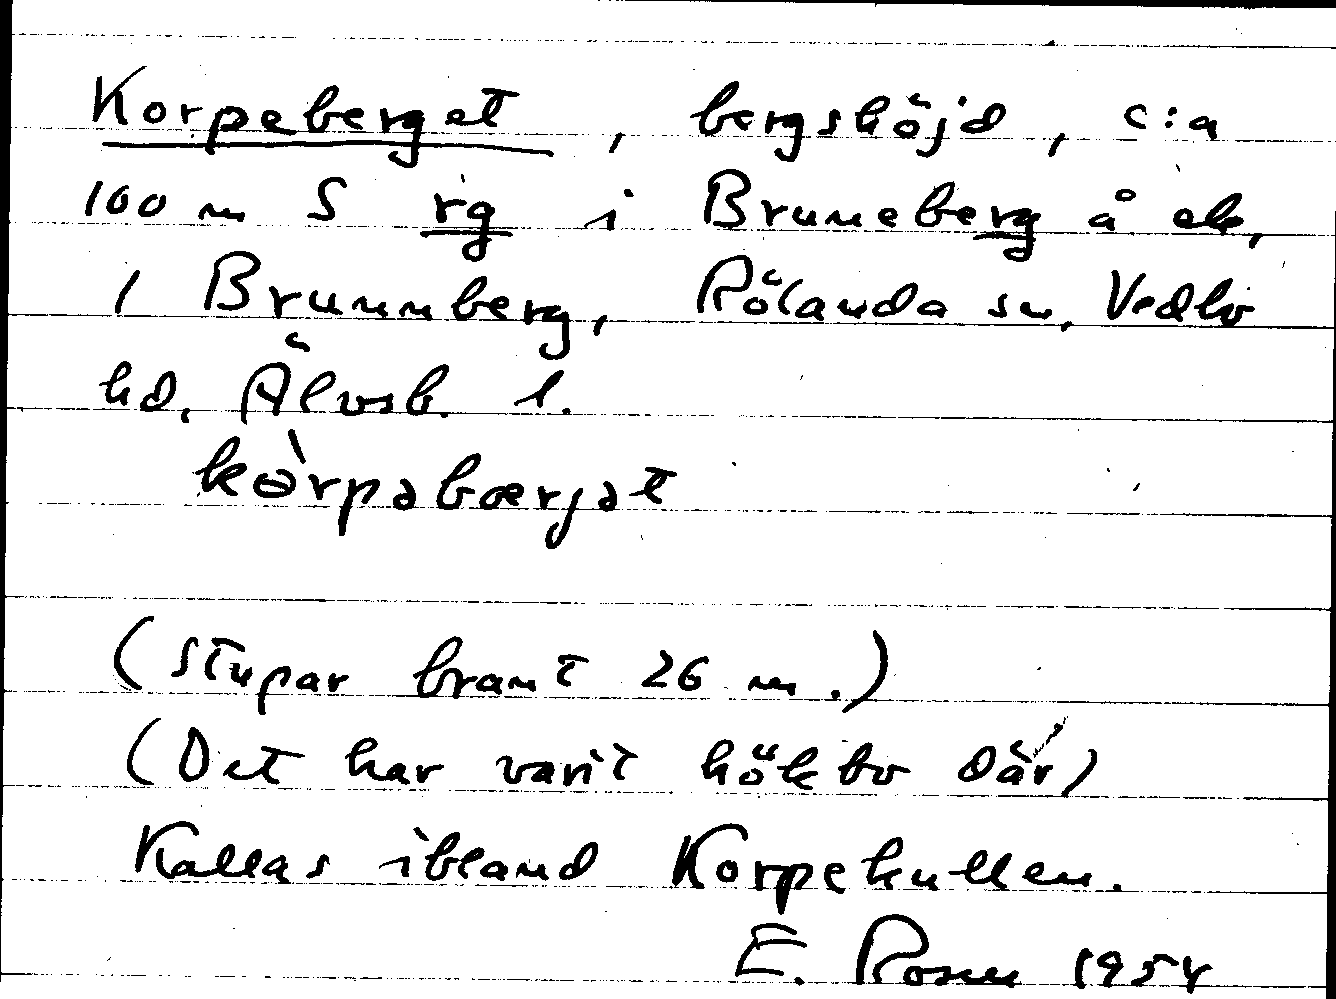 Korpeberget, bergshöjd, c:a
100 m S rg i Bruneberg å ek,
1 Brunnberg, Rölanda sn, Vedbo
hd, Älvsb. l.
kòrpəbærjət
(stupar brant 26 m.)
(Det har varit hökbo där)
Kallas ibland Korpekullen.
E. Rosen 1954